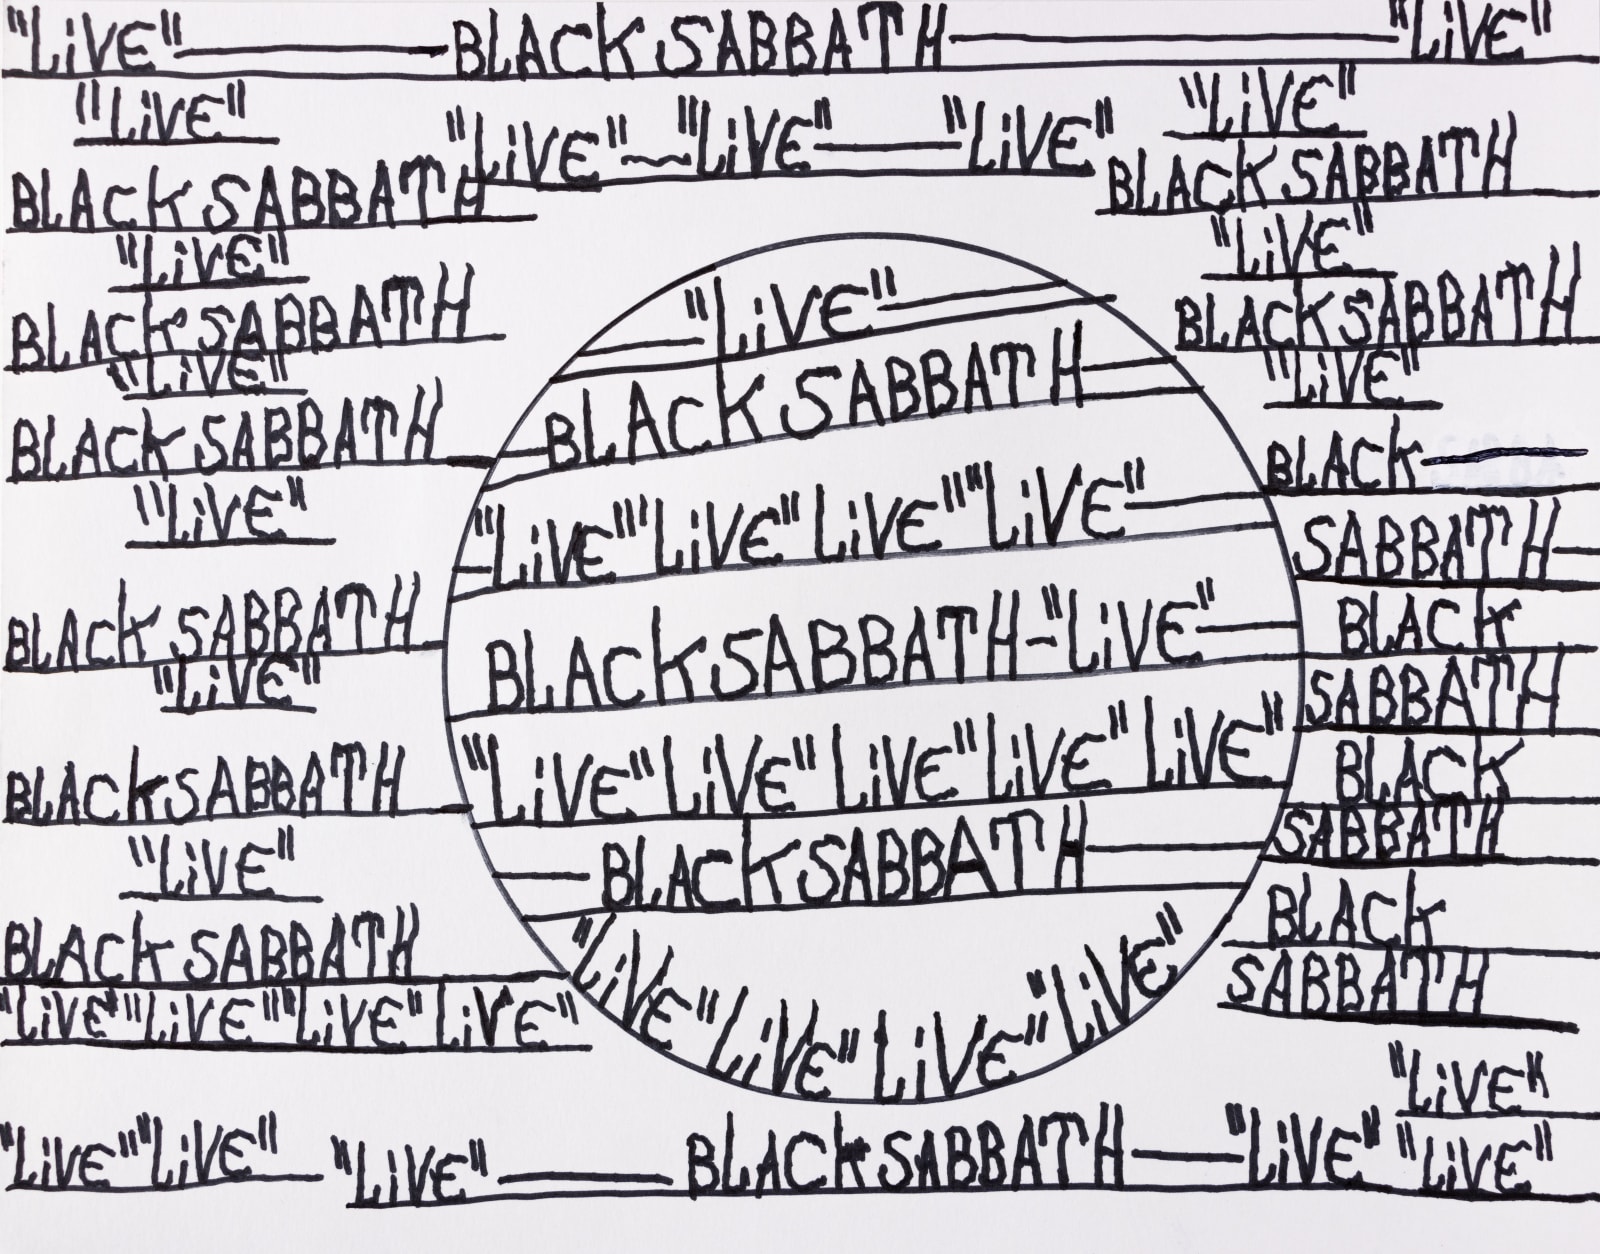 "LiVE" BLACK SABBATH "LiVE"
"LiVE"
BLACK SABBATH
"LiVE"
BLACK SABBATH
"LiVE"
BLACK SABBATH
"LiVE"
BLACK SABBATH
"LiVE"
BLACK SABBATH
"LiVE"
BLACK SABBATH
"LiVE" "LiVE" "LiVE" LiVE"
"LiVE" "LiVE"
"LiVE" ~ "LiVE" — "LiVE"
"LiVE"
BLACK SABBATH
"LiVE" "LiVE" LiVE" "LiVE"
BLACK SABBATH - "LiVE"
"LiVE" LiVE" LiVE" LiVE" LiVE"
BLACK SABBATH
"LiVE" LiVE" LiVE" "LiVE"
"LiVE"
BLACK SABBATH
"LiVE"
BLACK SABBATH
"LiVE"
BLACK
SABBATH
BLACK
SABBATH
BLACK
SABBATH
BLACK
SABBATH
"LiVE"
"LiVE" — BLACK SABBATH — "LiVE" "LiVE"